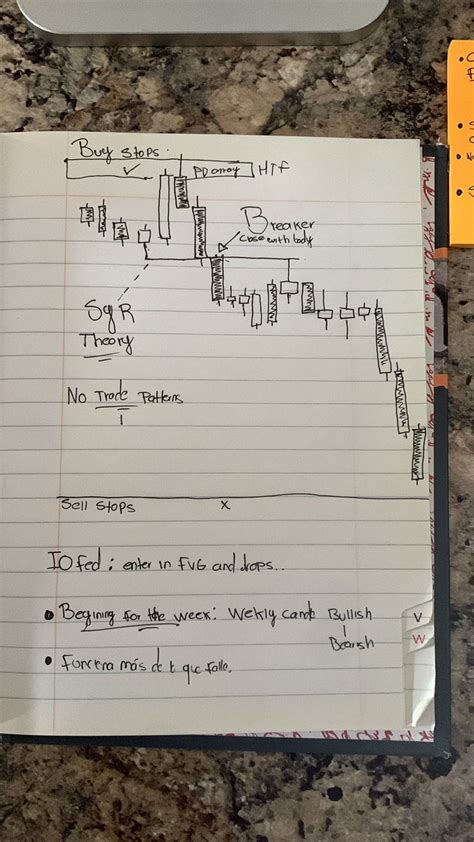 Buy stops.
✓ PD array HTF
Breaker
close with body
S y R
Theory
No Trade Patterns
Sell stops x
IOfed: enter in FVG and drops..
• Begining for the week: Wekly cande Bullish
Bearish
• Funciona más de que falle.
V
W